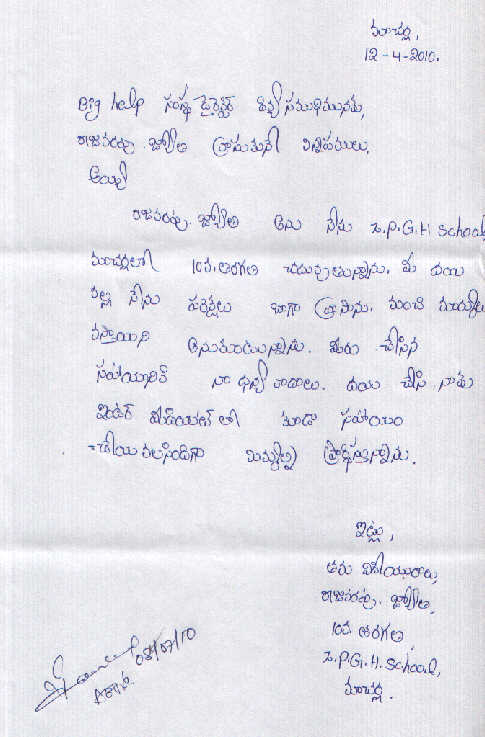 మాచర్ల,
12-4-2010.
Big help సంస్థ డైరెక్టర్ దివ్య సముఖమునకు,
రాజవరపు. జ్యోతి వ్రాసుకునే విన్నపములు,
అయ్యా
రాజవరపు. జ్యోతి అను నేను Z.P.G.H School,
మాచర్లలో 10వ. తరగతి చదువుతున్నాను. మీ దయ
వల్ల నేను పరీక్షలు బాగా వ్రాసాను. మంచి మార్కులు
వస్తాయని అనుకుంటున్నాను. మీరు చేసిన
సహాయానికి నా ధన్యవాదాలు. దయ చేసి నాకు
ఇంటర్ మీడియట్ లో కూడా సహాయం
చేయవలసిందిగా మిమ్మల్ని ప్రార్థిస్తున్నాను.
ఇట్లు,
తమ విధేయురాలు,
రాజవరపు. జ్యోతి,
10వ. తరగతి,
Z.P.G.H. School,
మాచర్ల.
08/07/10